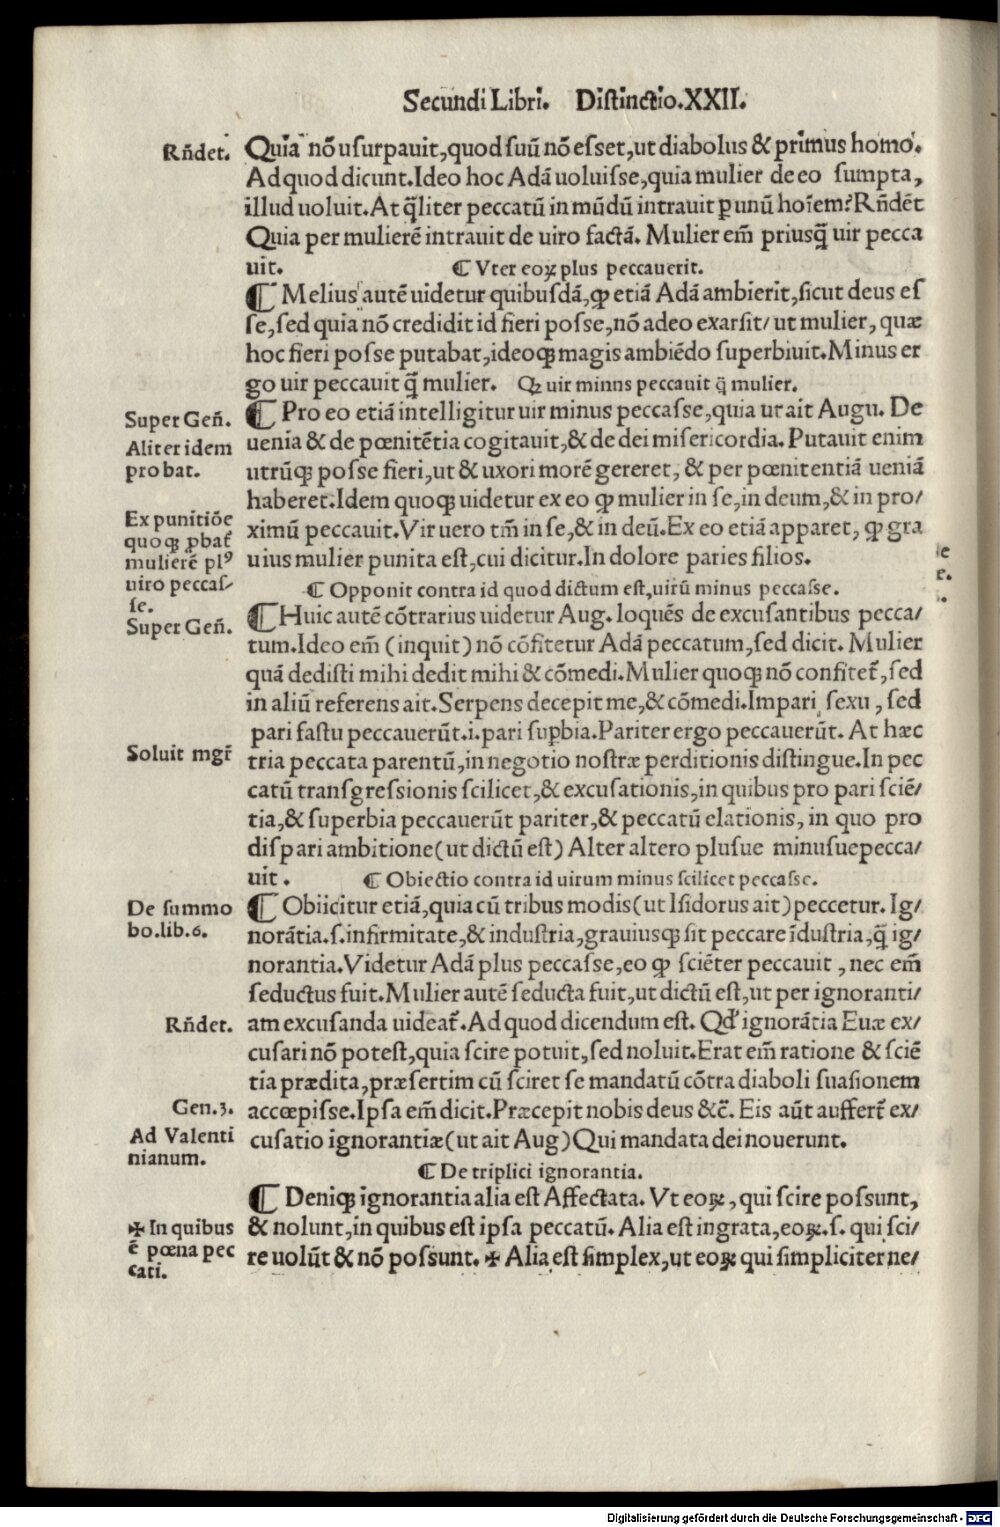 Secundi Libri. Distinctio.XXII.
Rñdet.
Quia nõ usurpauit,quod suũ nõ esset,ut diabolus & primus homo.
Ad quod dicunt.Ideo hoc Adã uoluisse,quia mulier de eo sumpta,
illud uoluit.At q̃liter peccatũ in mũdũ intrauit ꝑ unũ hoĩem?Rñdẽt
Quia per mulierẽ intrauit de uiro factã. Mulier em̃ priusq̃ uir pecca
uit. ¶ Vter eoꝝ plus peccauerit.
¶ Melius autẽ uidetur quibusdã,ꝙ etiã Adã ambierit,sicut deus es
se,sed quia nõ credidit id fieri posse,nõ adeo exarsit/ut mulier, quæ
hoc fieri posse putabat,ideoqꝫ magis ambiẽdo superbiuit.Minus er
go uir peccauit q̃ mulier. Qꝫ uir minns peccauit q̃ mulier.
Super Geñ.
¶ Pro eo etiã intelligitur uir minus peccasse,quia ut ait Augu. De
Aliter idem
uenia & de pœnitẽtia cogitauit,& de dei misericordia. Putauit enim
probat.
utrũqꝫ posse fieri,ut & uxori morẽ gereret, & per pœnitentiã ueniã
haberet.Idem quoqꝫ uidetur ex eo ꝙ mulier in se,in deum,& in pro/
Ex punitiõe
quoqꝫ ꝓbat̃
mulierẽ plꝰ
uiro peccas/
se.
ximũ peccauit.Vir uero tm̃ in se,& in deũ.Ex eo etiã apparet, ꝙ gra
uius mulier punita est,cui dicitur.In dolore paries filios.
¶ Opponit contra id quod dictum est,uirũ minus peccasse.
Super Geñ.
¶ Huic autẽ cõtrarius uidetur Aug. loquẽs de excusantibus pecca/
tum.Ideo em̃ (inquit) nõ cõfitetur Adã peccatum,sed dicit. Mulier
quã dedisti mihi dedit mihi & cõmedi.Mulier quoqꝫ nõ confitet̃,sed
in aliũ referens ait.Serpens decepit me,& cõmedi.Impari sexu , sed
pari fastu peccauerũt.i.pari suꝑbia.Pariter ergo peccauerũt. At hæc
Soluit mgr̃
tria peccata parentũ,in negotio nostræ perditionis distingue.In pec
catũ transgressionis scilicet,& excusationis,in quibus pro pari sciẽ/
tia,& superbia peccauerũt pariter,& peccatũ elationis, in quo pro
dispari ambitione(ut dictũ est) Alter altero plusue minusuepecca/
uit . ¶ Obiectio contra id uirum minus scilicet peccasse.
De summo
bo.lib.6.
¶ Obiicitur etiã,quia cũ tribus modis(ut Isidorus ait)peccetur. Ig/
norãtia.s.infirmitate,& industria,grauiusqꝫ sit peccare ĩdustria,q̃ ig/
norantia.Videtur Adã plus peccasse,eo ꝙ sciẽter peccauit , nec em̃
seductus fuit.Mulier autẽ seducta fuit,ut dictũ est,ut per ignoranti/
Rñdet.
am excusanda uideat̃.Ad quod dicendum est. Qd̓ ignorãtia Euæ ex/
cusari nõ potest,quia scire potuit,sed noluit.Erat em̃ ratione & sciẽ
tia prædita,præsertim cũ sciret se mandatũ cõtra diaboli suasionem
Gen.3.
accœpisse.Ipsa em̃ dicit.Præcepit nobis deus &c̃. Eis aũt auffert̃ ex/
Ad Valenti
nianum.
cusatio ignorantiæ(ut ait Aug)Qui mandata dei nouerunt.
¶ De triplici ignorantia.
¶ Deniqꝫ ignorantia alia est Affectata. Vt eoꝝ, qui scire possunt,
✠ In quibus
ẽ pœna pec
cati.
& nolunt,in quibus est ipsa peccatũ. Alia est ingrata,eoꝝ.s. qui sci/
re uolũt & nõ possunt. ✠ Alia est simplex,ut eoꝝ qui simpliciter ne/
Digitalisierung gefördert durch die Deutsche Forschungsgemeinschaft - DFG